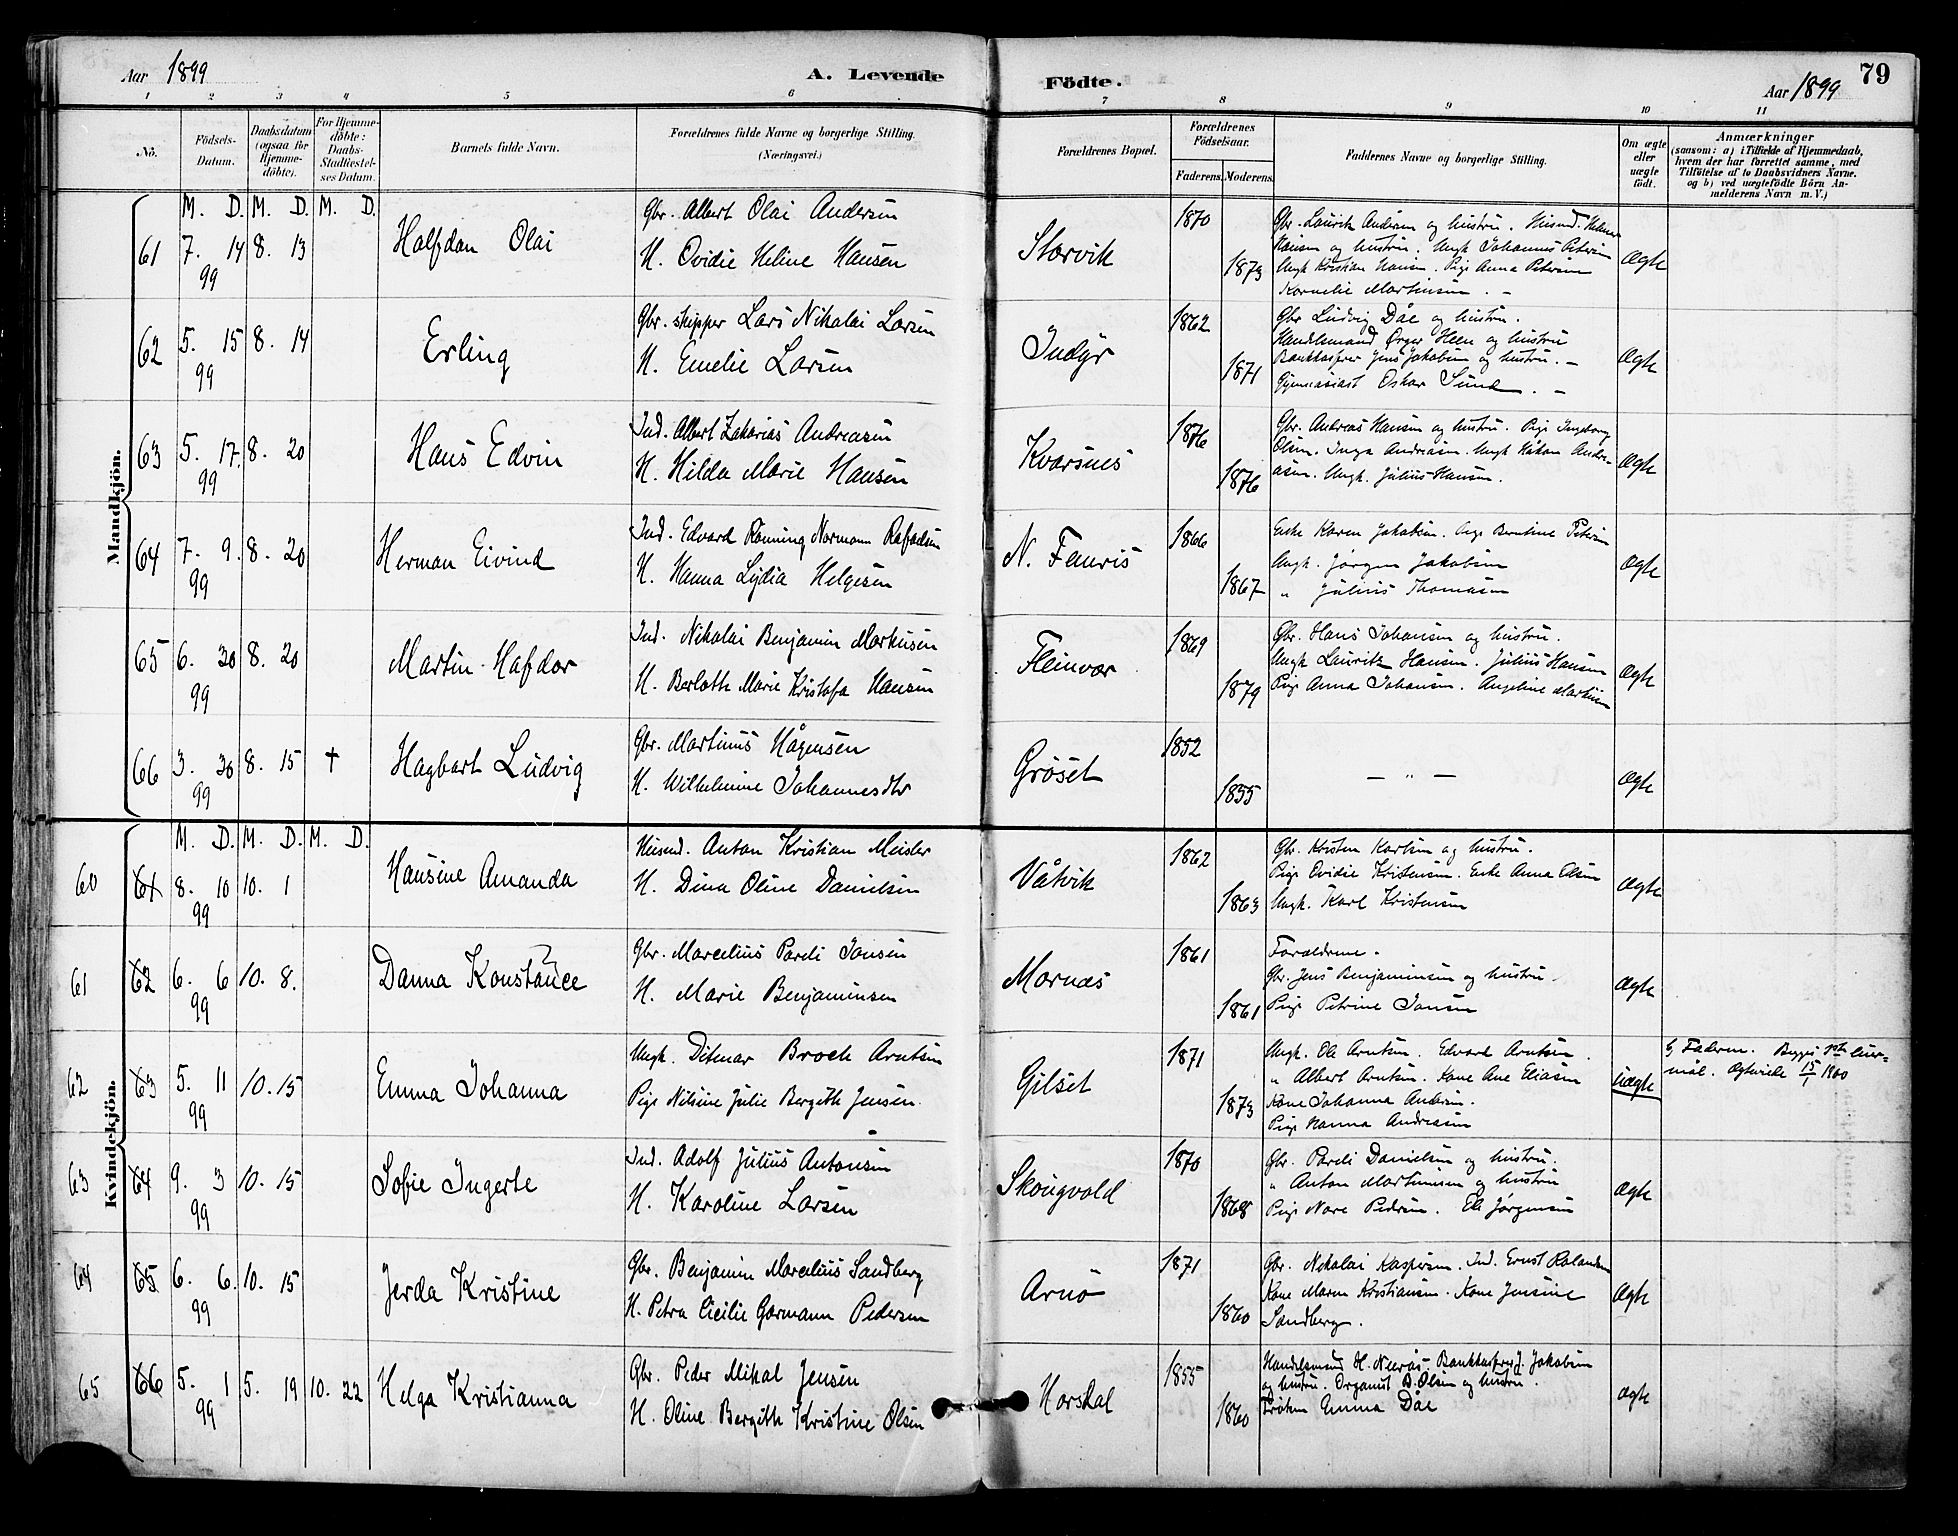 Aar 1899
A. Levende
Födte.
Aar 1899
79
1 2 3 4 5 6 7 8 9 10 11
No.
Födsels-Datum.
Daabsdatum (ogsaa for Hjemme-döbte).
For Hjemme-döbte: Daabs-Stadfæstel-ses Datum.
Barnets fulde Navn.
Forældrenes fulde Navne og borgerlige Stilling.
(Næringsvei.)
Forældrenes Bopæl.
Forældrenes Födselsaar.
Faderens. Moderens.
Faddernes Navne og borgerlige Stilling.
Om ægte eller uægte födt.
Anmærkninger
(saasom: a) i Tilfælde af Hjemmedaab,
hvem der har forrettet samme, med
Tilföielse af to Daabsvidners Navne.
og b) ved uægtefödte Börn An-
melderens Navn m. V.)
Mandkjön.
M. D. M. D. M. D.
61 7. 14 99 8. 13 Halfdan Olai
Gbr. Albert Olai Andersen
H. Ovidie Heline Hansen
Storvik 1870 1873
Gbr. Laurits Andersen og hustru. Husmd. Helmer
Hansen og hustru. Ungk Johannes Petersen
Ungk Kristian Hansen. Pige Anna Petersen
Kornelie Martinsen. –
Ægte
62 5. 15 99 8. 14 Erling
Gbr. skipper Lars Nikolai Larsen
H. Emelie Larsen
Indyr 1862 1871
Gbr Ludvig Dåe og hustru.
Handelsmand Ørger Heen og hustru
Bankkasserer Jens Jakobsen og hustru. –
Gymnasiast Oskar Sund. –
Ægte
63 5. 17. 99 8. 20 Hans Edvin
Ind. Albert Zakarias Andreasen
H. Hilda Marie Hansen
Kvarsnes 1876 1876
Gbr. Andreas Hansen og hustru. Pige Ingeborg
Olsen. Inga Andreasen. Ungk Håkon Andre-
asen. Ungk. Julius Hansen.
Ægte
64 7. 9. 99 8. 20 Herman Eivind
Ind. Edvard Rønning Normann
H. Hanna Lydia Helgesen
N. Fauris 1866 1867
Enke Karen Jakobsen. Pige Berntine Petersen
Ungk. Jørgen Jakobsen
" Julius Thomasen
Ægte
65 6. 20 99 8. 20 Martin Hafdor
Ind. Nikolai Benjamin Markusen
H. Berloth Marie Kristofa Hansen
Fleinvær 1869 1879
Gbr. Hans Johansen og hustru.
Ungk Lauritz Hansen. Julius Hansen
Pige Anna Johansen. Angeline Martinsen
Ægte
66 3. 30 99 8. 15 † Hagbart Ludvig
Gbr. Martinus Hågensen
H. Wilhelmine Johannesdtr
Grøset 1852 1855
– " –
Ægte
Kvindekjön.
M. D. M. D. M. D.
60 61 8. 10 99 10. 1 Hansine Amanda
Husmd. Anton Kristian Meisler
H. Dina Oline Danielsen
Våtvik 1862 1863
Gbr. Kristen Karlsen og hustru.
Pige Ovidie Kristensen. Enke Anna Olsen
Ungk. Karl Kristensen
Ægte
61 62 6. 6 99 10. 8. Danna Konstance
Gbr. Marcelius Pareli Jansen
H. Marie Benjaminsen
Mornæs 1861 1861
Forældrene.
Gbr. Jens Benjaminsen og hustru.
Pige Petrine Jansen
Ægte
62 63 5. 11 99 10. 15 Emma Johanna
Ungk. Ditmar Broch Arntsen
Pige Nilsine Julie Bergith Jensen.
Gilset 1871 1873
Ungk. Ole Arntsen. Edvard Arntsen.
" Albert Arntsen. Kone Ane Eliasen
Kone Johanna Andersen.
Pige Hanna Andreasen
Uægte
b, Faderen. Begges 1ste leier-
mål. Ægteviede 15/1 1900
63 64 9. 3 99 10. 15 Sofie Ingerte
Ind. Adolf Julius Antonsen
H. Karoline Larsen
Skougvold 1870 1868
Gbr. Pareli Danielsen og hustru.
" Anton Martinusen og hustru
Pige Nore Pedersen. Ele Jørgensen
Ægte
64 65 6. 6. 99 10. 15 Jerda Kristine
Gbr. Benjamin Marcelius Sandberg
H. Petra Cicilie Gormann Pedersen
Arnø 1871 1860
Gbr. Nikolai Kaspersen. Ind. Ernst Rolandsen
Kone Maren Kristiansen. Kone Jensine
Sandberg.
Ægte
65 66 5. 1 99 5. 19 10. 22 Helga Kristianna
Gbr. Peder Mikal Jensen
H. Oline Bergith Kristine Olsen
Horsdal 1855 1860
Handelsmand H. Neerås. Bankkasserer J. Jakobsen
og hustru. Organist B. Olsen og hustru.
Frøken Emma Dåe
Ægte